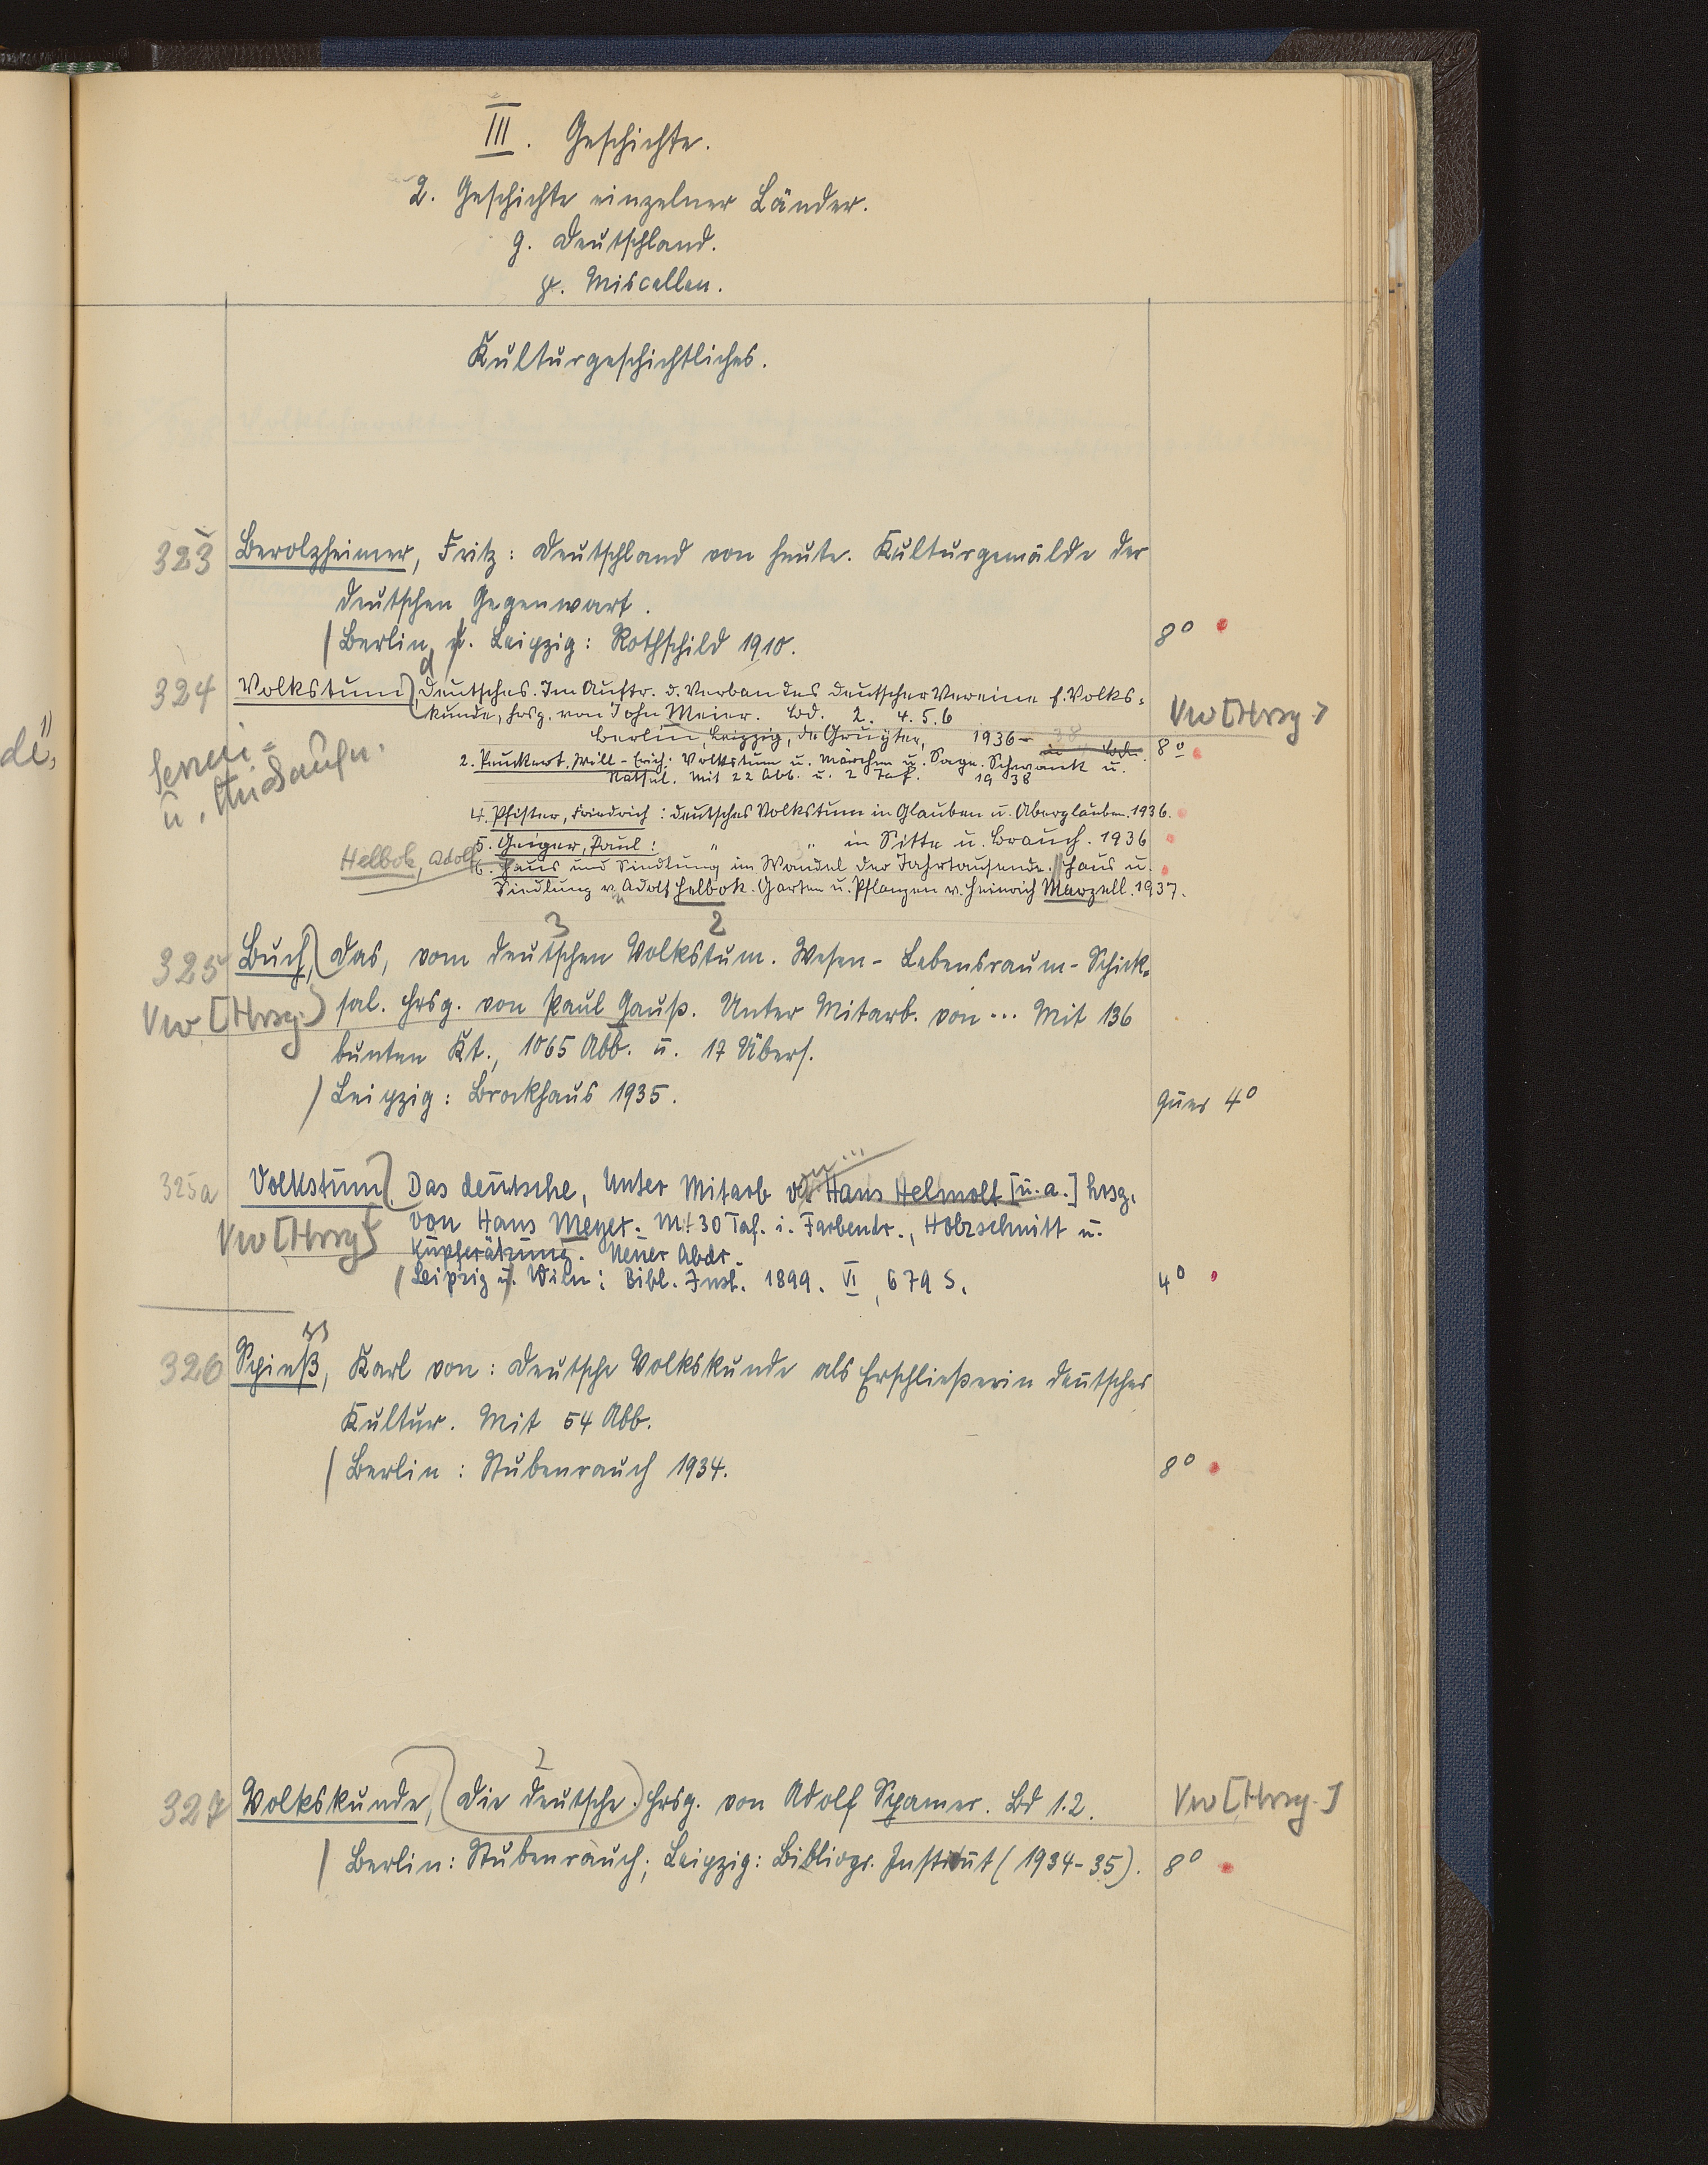 III. Geschichte.
2. Geschichte einzelner Länder.
g. Deutschland.
Miscellen.
Kulturgeschichtliches.
323 Berolzheimer, Fritz: Deutschland von heute. Kulturgemälde der
deutschen Gegenwart.
Berlin u. Leipzig: Rothschild 1910. 8°
324 Volkstum, Deutsches. Im Auftr. d. Verbandes deutscher Vereine f. Volks-
kunde, hrsg. von John Meier. Bd. 2. 4. 5. 6 Vw [Hrsg.]
Berlin, Leipzig, de Gruyter, 1936- 38 8°
Serien-
u. Aufn.
2. Peuckert, Will-Erich: Volkstum u. Märchen u. Sage. Schwank u.
Rätsel. Mit 22 Abb. u. 2 Taf. 1938
4. Pfister, Friedrich: Deutsches Volkstum in Glauben u. Aberglauben. 1936.
5. Geiger, Paul: " " in Sitte u. Brauch. 1936
Helbok, Adolf
6. Haus und Siedlung im Wandel der Jahrtausende. Haus u.
Siedlung v. Adolf Helbok. Garten u. Pflanzen v. Heinrich Marzell. 1937.
3 2
325 Buch, Das, vom deutschen Volkstum. Wesen - Lebensraum - Schick-
Vw [Hrsg.] sal. Hrsg. von Paul Gauß. Unter Mitarb. von ... Mit 136
bunten Kt., 1065 Abb. u. 17 Übers.
Leipzig: Brockhaus 1935. Quer 4°
325a Volkstum, Das deutsche, Unter Mitarb von Hans Helmolt [u. a.] hrsg.
Vw [Hrsg] von Hans Meyer. Mt 30 Taf. i. Farbendr., Holzschnitt u.
Kupferätzung. Neuer Abdr.
Leipzig u. Wien: Bibl. Inst. 1899. VI, 679 S. 4°
326 Spieß, Karl von: Deutsche Volkskunde als Erschließerin deutscher
Kultur. Mit 54 Abb.
Berlin: Stubenrauch 1934. 8°
327 Volkskunde, Die deutsche. Hrsg. von Adolf Spamer. Bd 1.2. Vw [Hrsg.]
Berlin: Stubenrauch; Leipzig: Bibliogr. Institut (1934-35). 8°